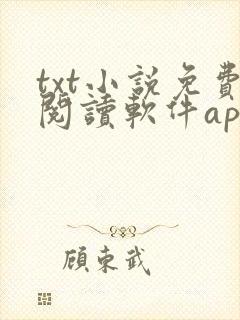 txt小說免費
閱讀軟件ap
顧東武